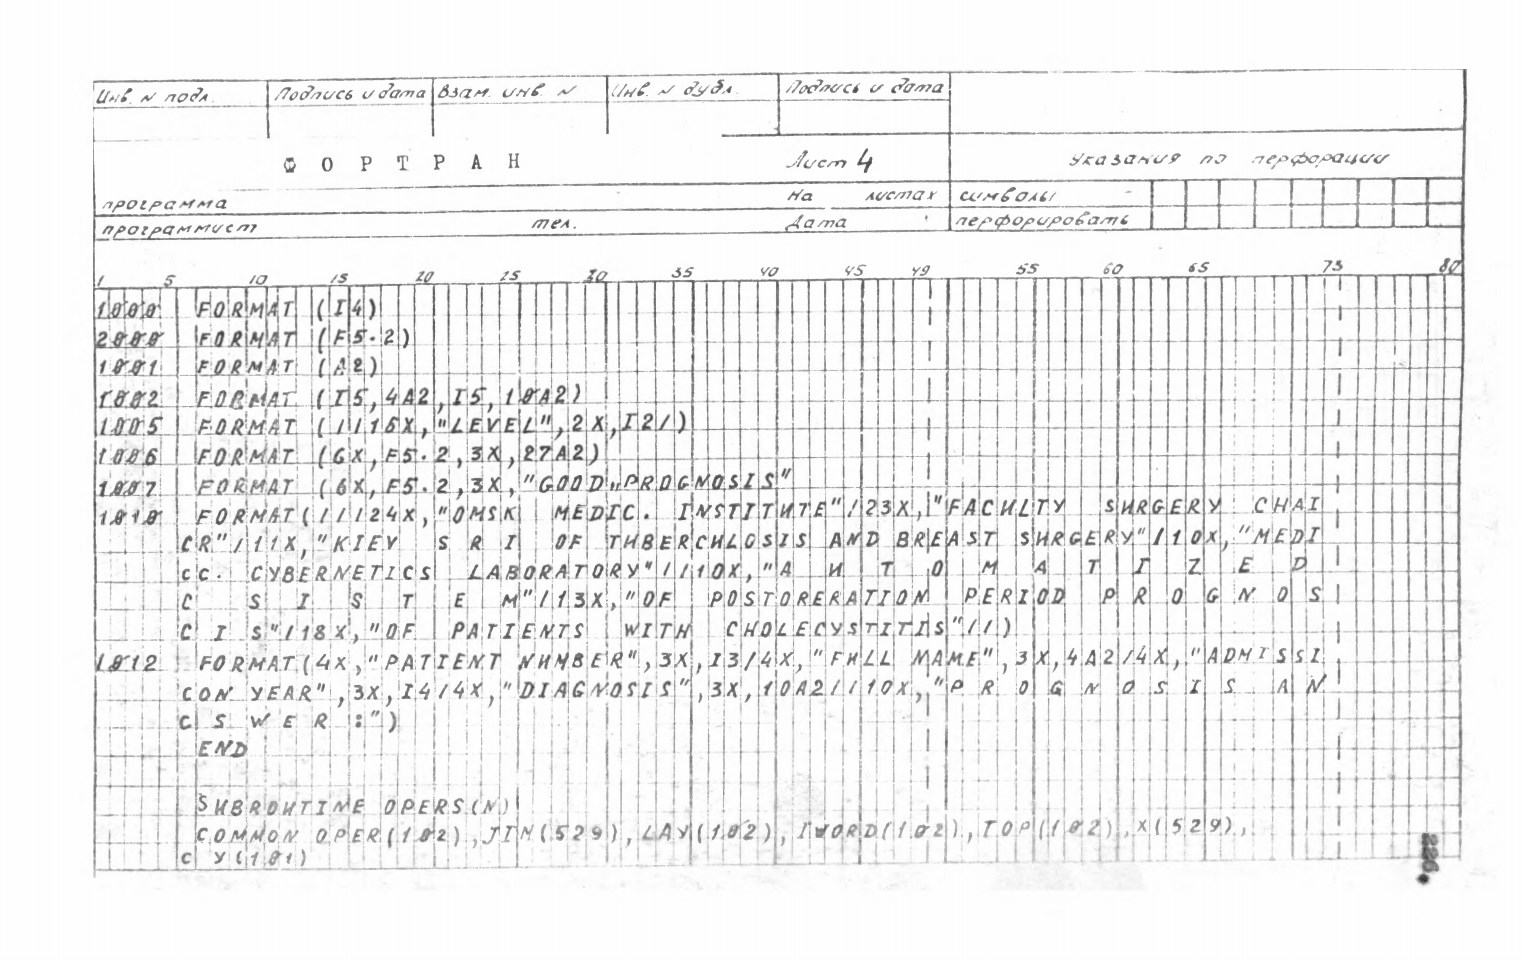 Инв. N подл. Подпись и дата Взам. инв. N Инв. N дубл. Подпись и дата
Ф О Р Т Р А Н Лист 4 Указания по перфорации
программа На листах символы
программист тел. Дата перфорировать
1 5 10 15 20 25 30 35 40 45 49 55 60 65 73 80
1000 FORMAT (I4)
2000 FORMAT (F5.2)
1001 FORMAT (A2)
1002 FORMAT (I5,4A2,I5,10A2)
1005 FORMAT (///15X,"LEVEL",2X,I2/)
1006 FORMAT (6X,F5.2,3X,27A2)
1007 FORMAT (6X,F5.2,3X,"GOOD„PROGNOSIS"
1010 FORMAT(///24X,"OMSK MEDIC. INSTITUTE"/23X,"FACULTY SURGERY CHAI
CR"/11X,"KIEV S R I OF TUBERCULOSIS AND BREAST SURGERY"/10X,"MEDI
CC. CYBERNETICS LABORATORY"///10X,"A U T O M A T I Z E D
C S I S T E M"/13X,"OF POSTORERATION PERIOD P R O G N O S
C I S"/18X,"OF PATIENTS WITH CHOLECYSTITIS"//)
1012 FORMAT(4X,"PATIENT NUMBER",3X,I3/4X,"FULL NAME",3X,4A2/4X,"ADMISSI
CON YEAR",3X,I4/4X,"DIAGNOSIS",3X,10A2///10X,"P R O G N O S I S A N
C S W E R :")
END
SUBROUTINE OPERS(N)
COMMON OPER(102),JIN(529),LAY(102),IWORD(102),TOP(102),X(529),
C Y(101)
226.